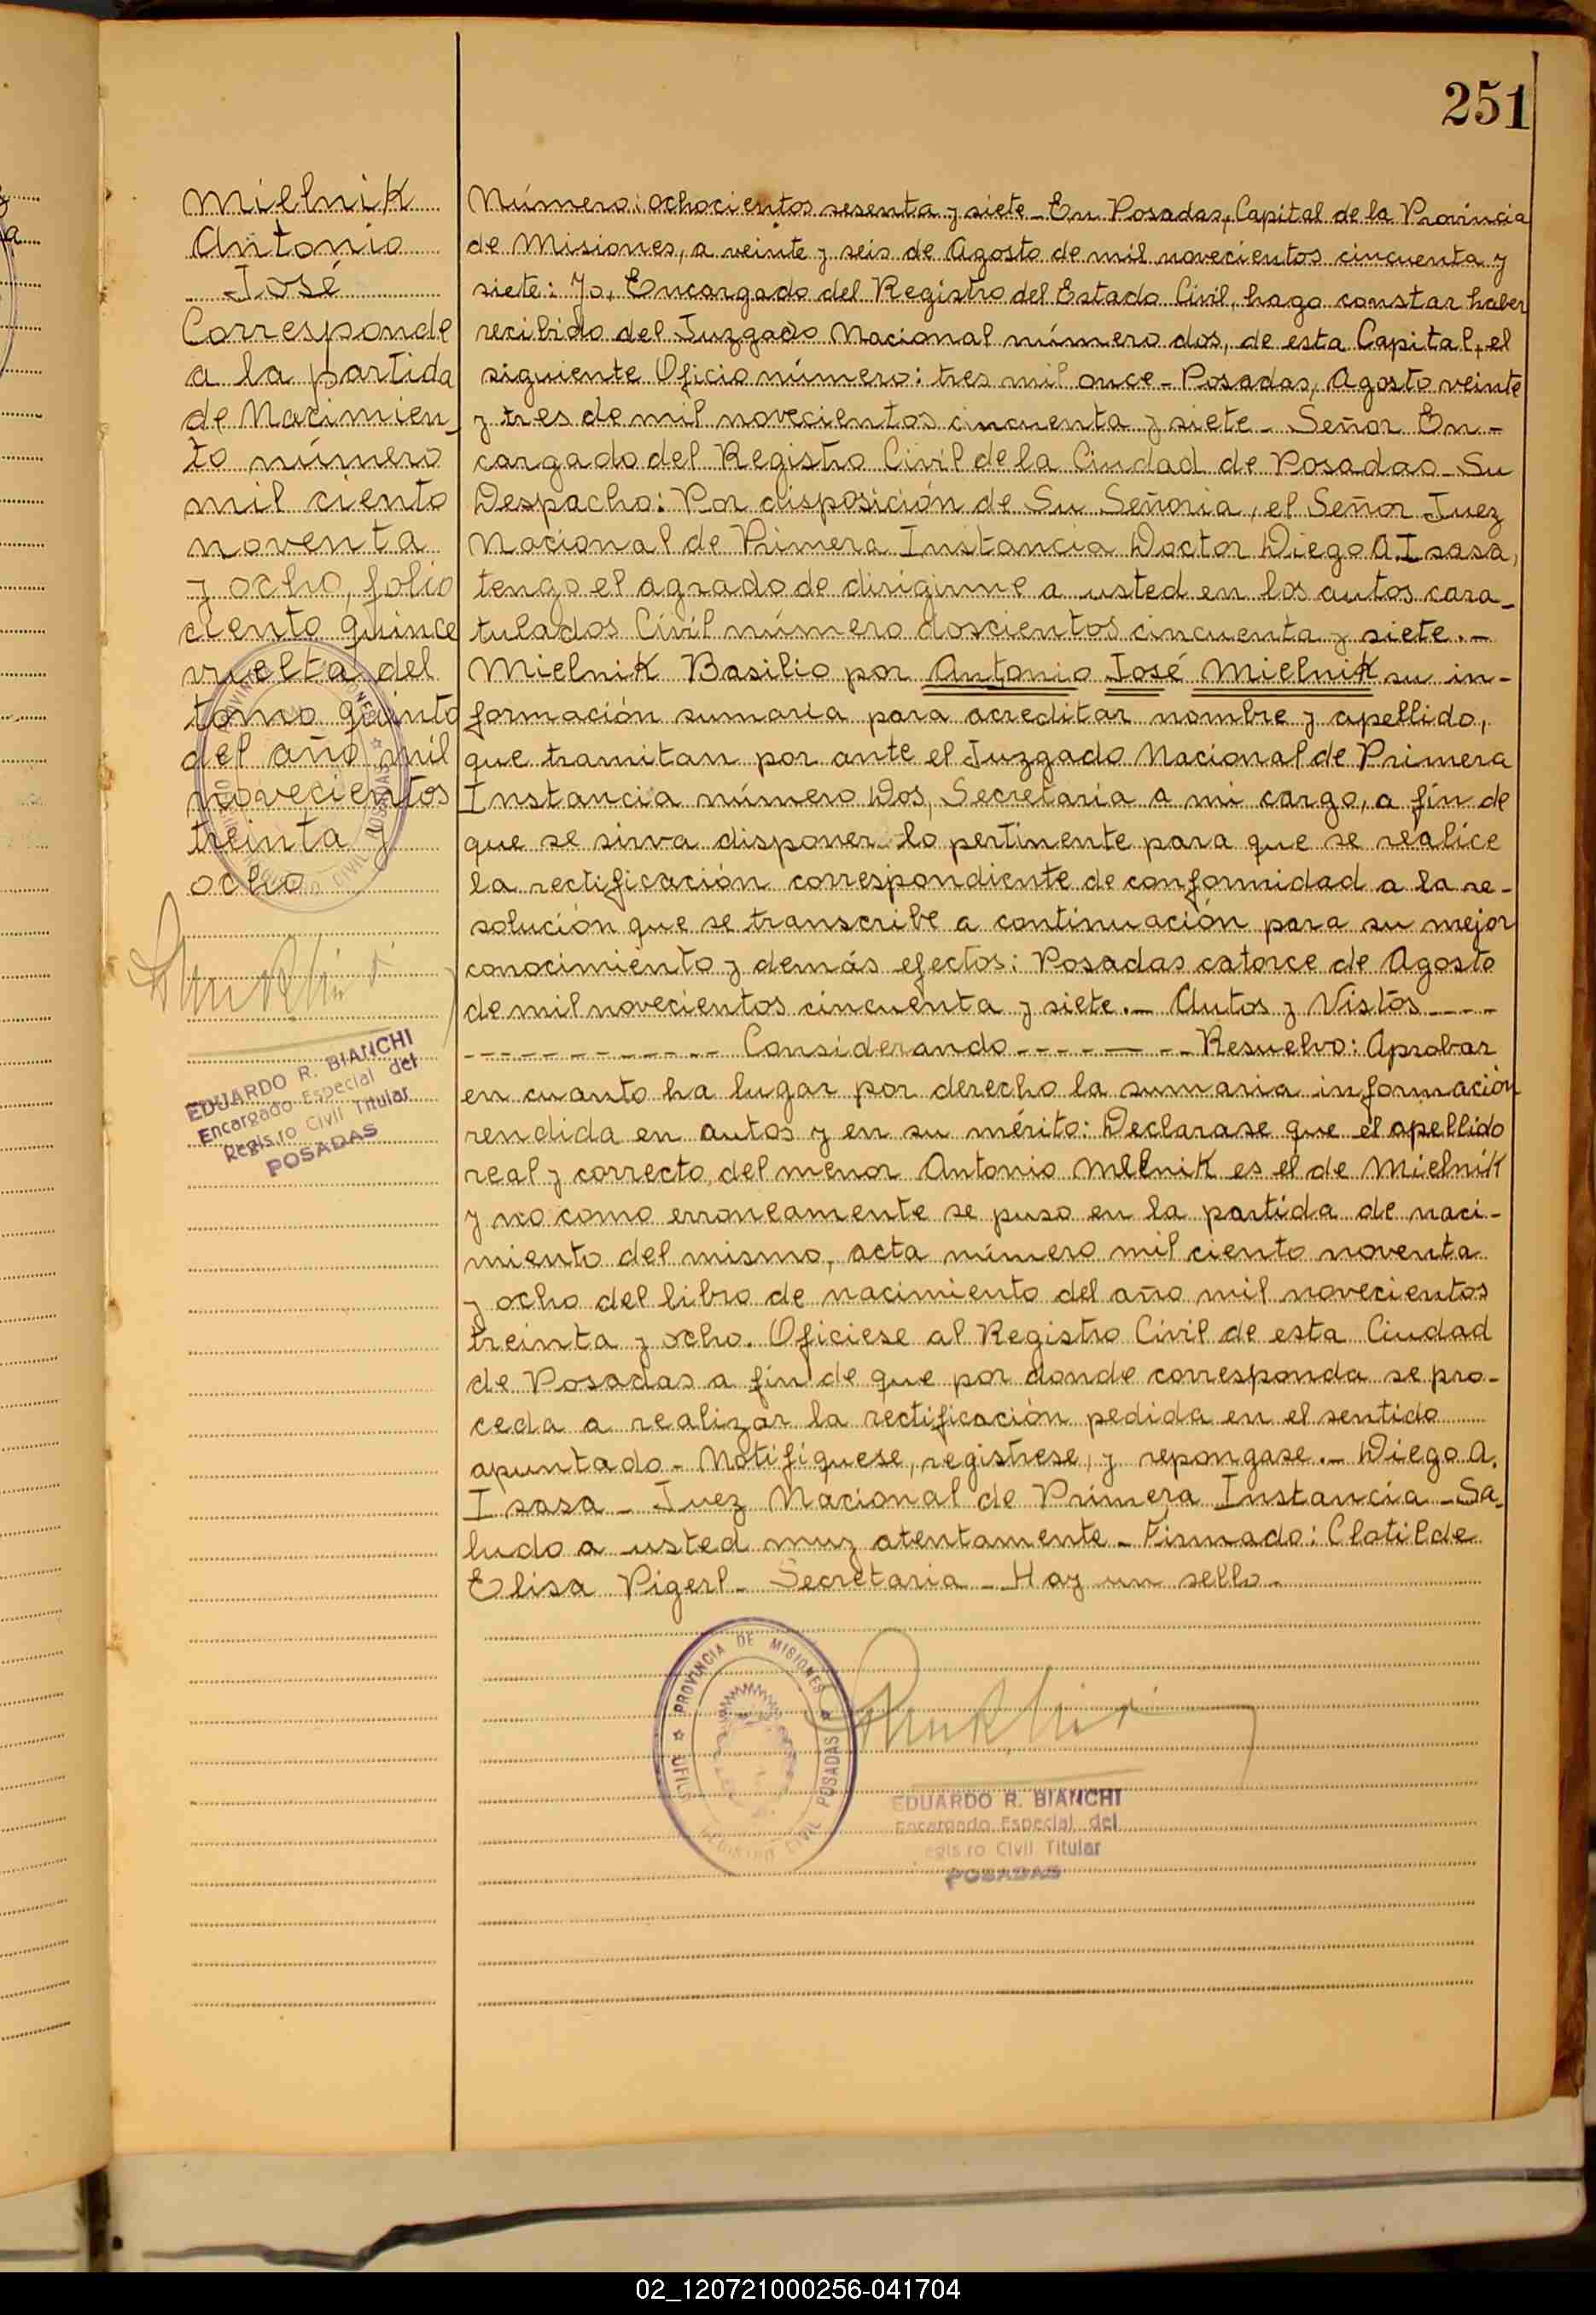 251
Mielnik
Antonio
José
Corresponde
a la partida
de Nacimien-
to número
mil ciento
noventa
y ocho, folio
ciento quince
vuelta del
tomo quinto
del año mil
novecientos
treinta y
ocho
EDUARDO R. BIANCHI
Encargado Especial del
Regis.ro Civil Titular
POSADAS
Número: ochocientos sesenta y siete - En Posadas, Capital de la Provincia
de Misiones, a veinte y seis de Agosto de mil novecientos cincuenta y
siete: Yo, Encargado del Registro del Estado Civil, hago constar haber
recibido del Juzgado Nacional número dos, de esta Capital, el
siguiente Oficio número: tres mil once - Posadas, Agosto veinte
y tres de mil novecientos cincuenta y siete - Señor En-
cargado del Registro Civil de la Ciudad de Posadas - Su
Despacho: Por disposición de Su Señoria, el Señor Juez
Nacional de Primera Instancia Doctor Diego A. Isasa,
tengo el agrado de dirigirme a usted en los autos cara-
tulados Civil número doscientos cincuenta y siete.-
Mielnik Basilio por Antonio José Mielnik su in-
formación sumaria para acreditar nombre y apellido,
que tramitan por ante el Juzgado Nacional de Primera
Instancia número Dos, Secretaria a mi cargo, a fin de
que se sirva disponer lo pertinente para que se realice
la rectificación correspondiente de conformidad a la re-
solución que se transcribe a continuación para su mejor
conocimiento y demás efectos: Posadas catorce de Agosto
de mil novecientos cincuenta y siete.- Autos y Vistos ----
------------- Considerando --------- Resuelvo: Aprobar
en cuanto ha lugar por derecho la sumaria información
rendida en autos y en su mérito: Declarase que el apellido
real y correcto, del menor Antonio Mlenik es el de Mielnik
y no como erroneamente se puso en la partida de naci-
miento del mismo, acta número mil ciento noventa
y ocho del libro de nacimiento del año mil novecientos
treinta y ocho. Oficiese al Registro Civil de esta Ciudad
de Posadas a fin de que por donde corresponda se pro-
ceda a realizar la rectificación pedida en el sentido
apuntado - Notifíquese, registrese, y repongase.- Diego A.
Isasa - Juez Nacional de Primera Instancia - Sa-
ludo a usted muy atentamente - Firmado: Clotilde
Elisa Pigerl - Secretaria - Hay un sello -
PROVINCIA DE MISIONES
REGISTRO CIVIL POSADAS
EDUARDO R. BIANCHI
Encargado Especial del
egis.ro Civil Titular
POSADAS
02_120721000256-041704